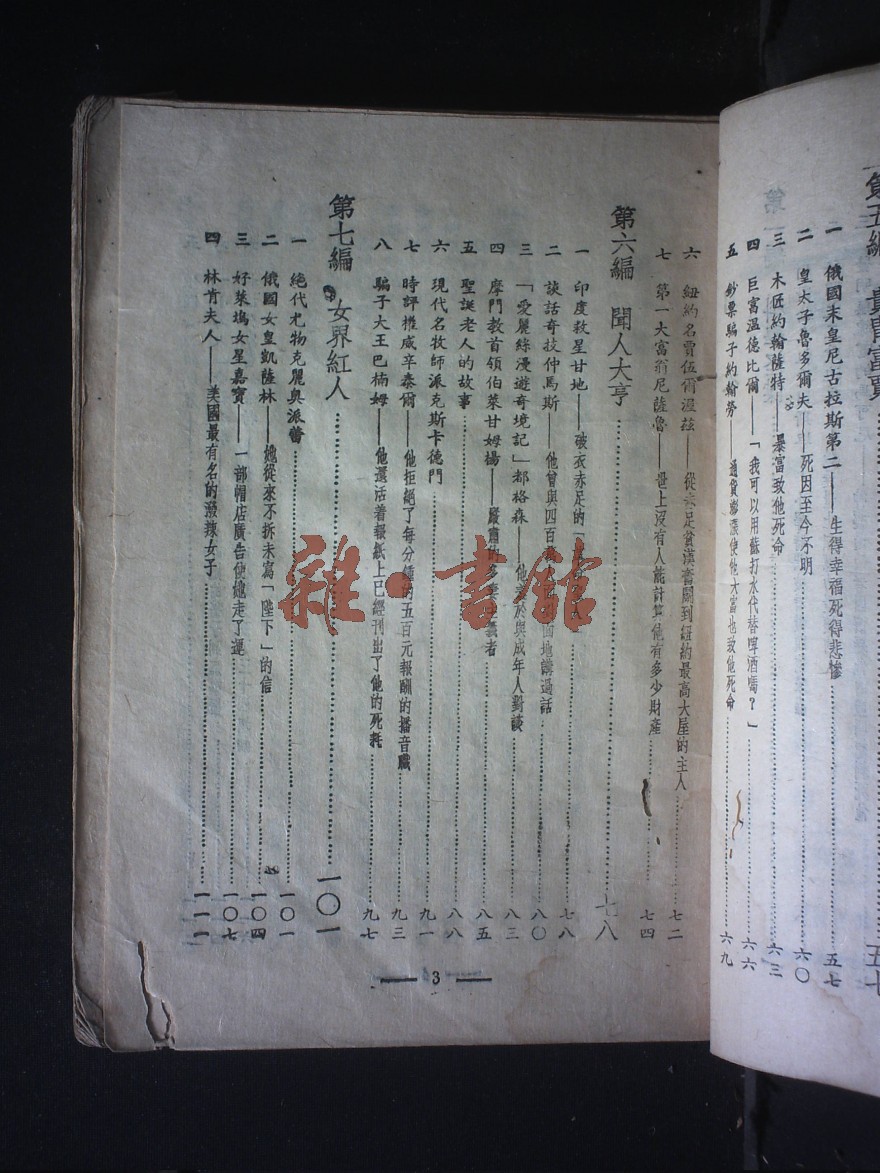 第五編 貴
五七
一 俄國末皇尼古拉斯第二——生得幸福死得悲慘 五七
二 皇太子魯多爾夫——死因至今不明 六〇
三 木匠約翰薩特——暴富致他死命 六三
四 巨富溫德比爾——「我可以用蘇打水代替啤酒嗎？」 六六
五 鈔票騙子約翰勞——通貨膨漲使他大富也致他死命 六九
六 紐約名賈伍爾渥茲——從赤足貧漢奮鬭到紐約最高大屋的主人 七二
七 第一大富翁尼薩魯——世上沒有人能計算他有多少財產 七四
第六編 聞人大亨 七八
一 印度救星甘地——破衣赤足的「 七八
二 談話奇技仲馬斯——他曾與四百 地講過話 八〇
三 「愛麗絲漫遊奇境記」都格森——他 於與成年人對談 八三
四 摩門教首領伯萊甘姆揚——嚴肅的多妻主義者 八五
五 聖誕老人的故事 八八
六 現代名牧師派克斯卡德門 九一
七 時評權威辛泰爾——他拒絕了每分鐘的五百元報酬的播音職 九三
八 騙子大王巴楠姆——他還活着報紙上已經刊出了他的死耗 九七
第七編 女界紅人 一〇一
一 絕代尤物克麗奧派蕾 一〇一
二 俄國女皇凱薩林——她從來不拆未寫「陛下」的信 一〇四
三 好萊塢女星嘉寶——一部帽店廣告使她走了運 一〇七
四 林肯夫人——美國最有名的潑辣女子 一一一
— 3 —
雜·書館